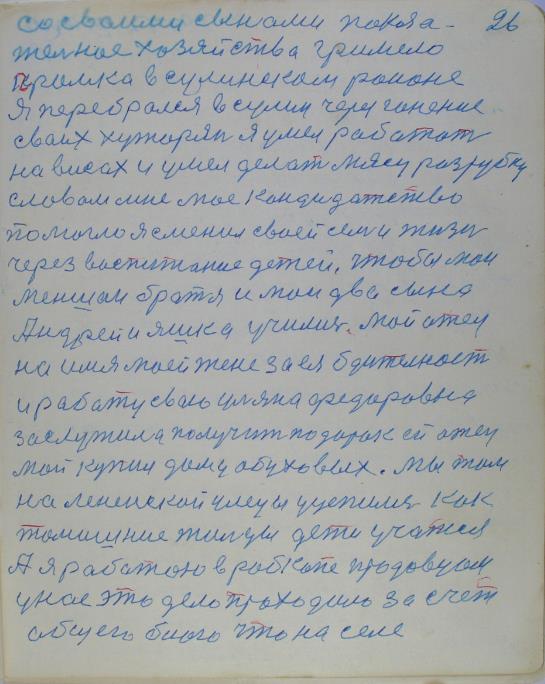 26
со своими сынами показа-
телное хозяйства гримело
громка в сулинском районе
Я перебрался в сулин через гонение
своих хуторян я умел работат
на висах и умел делат мясу разрубку
словом мне мое кандидатство
помогло я сменил своей семи жизн
через воспитание детей, чтобы мои
меншаи братя и мои два сына
Андрей и яшка училис. мой отец
на имя моей жене за ея бдителност
и работу сваю уляна федоровна
заслужила получит подарок ей отец
мой купил дом у обуховых. мы там
на ленинской улецы уцепилис как
томишние жилцы дети учатся
А я работаю в рабкопе продовцом
у нас это дело проходило за счет
общего блого что на селе